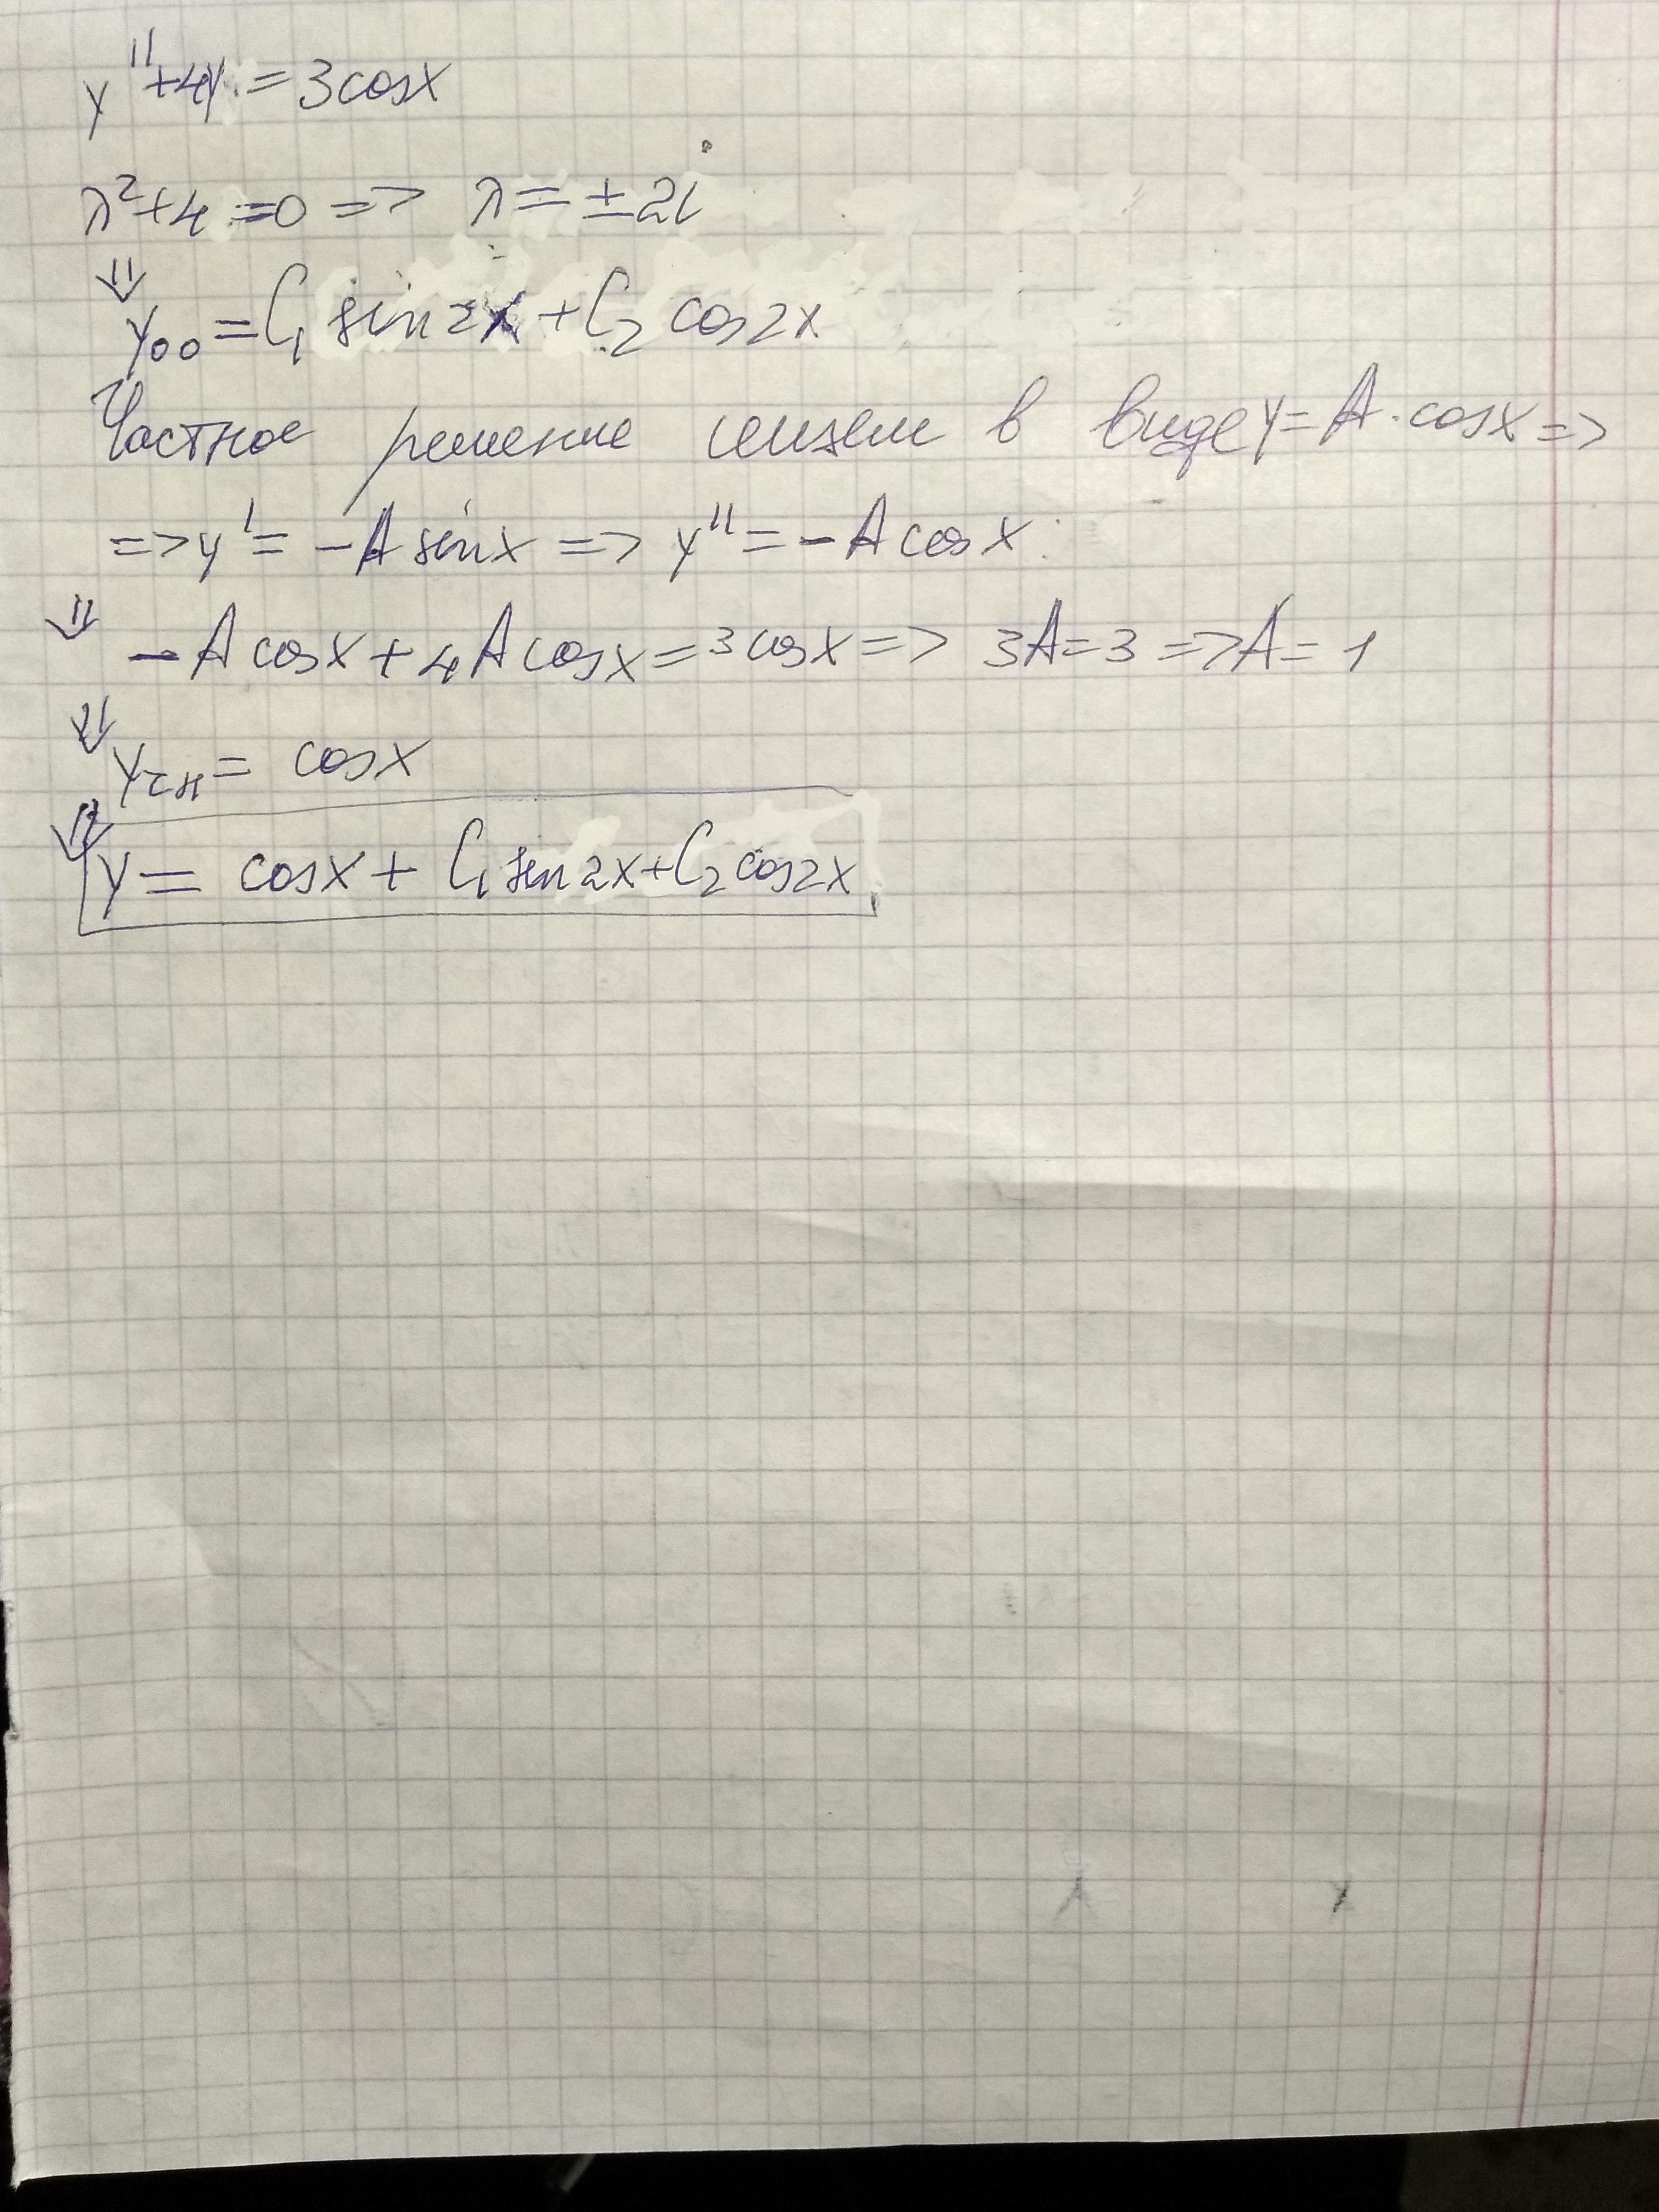 y''+4y=3cosx
λ²+4=0 => λ=±2i
⇓
y₀₀=C₁ sin2x+C₂ cos2x
Частное решение ищем в виде y=A·cosx=>
=>y'=-A sinx=>y''=-A cosx
⇓ -A cosx+4A cosx=3cosx=> 3A=3=>A=1
⇓
yчн= cosx
⇓ y= cosx+ C₁ sin2x+C₂ cos2x